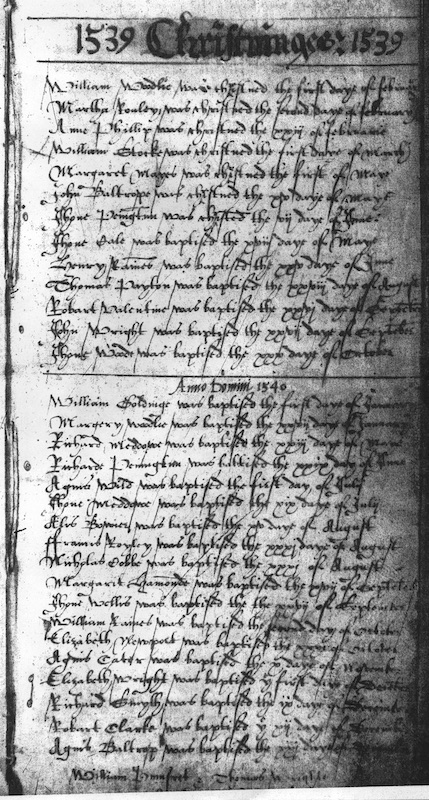 1539 Christninges: 1539
William Wodlie was christned the first daye of februarie
Martha Rowley was christned the second daye of february
Anne Phillip was christned the xxij of februarie
William Clarke was christned the first daye of March
Margaret Mayes was christned the first of Maye
John Baltrope was christned the xv daye of Maye
Jhone Penigtun was christned the vij daye of June
Jhone Dale was baptised the xvij daye of Maye
Henry Raines was baptised the xxv daye of June
Thomas Payton was baptised the daye of August
Robart Valentine was baptised the daye of September
John Wright was baptised the xxvij daye of September
Jhone Wode was baptised the xxx daye of October
Anno Domini 1540
William Goldinge was baptised the first daye of January
Margery Wodlie was baptised the daye of January
Richard Meddowe was baptised the xxij daye of Maye
Richarde Penington was baltised the xxix daye of June
Agnis Wild was baptised the first day of July
Jhone Meddowe was baptised the xix daye of July
Alis was baptised the xv daye of August
ffrancis Rowley was baptised the xxxj daye of August
Nicholas Cobbe was baptised the xxxj of August
Margarit Hamonde was baptised the xvij of September
Jhone Wellis was baptised the of September
William Raines was baptised the second day of October
Elizabeth Newpolt was baptised the of October
Agnis Cater was baptised the x daye of November
Elizabeth Wright was baptised y first daye of December
Richard Smyth was baptised the ix daye of December
Robart Clarke was baptised y xij daye of December
Agnis Baltrop was baptised the daye of December
William Thomas Wright